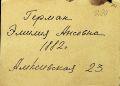 Герман
Эмилия Ансовна
1882г.
Алексеевская 23